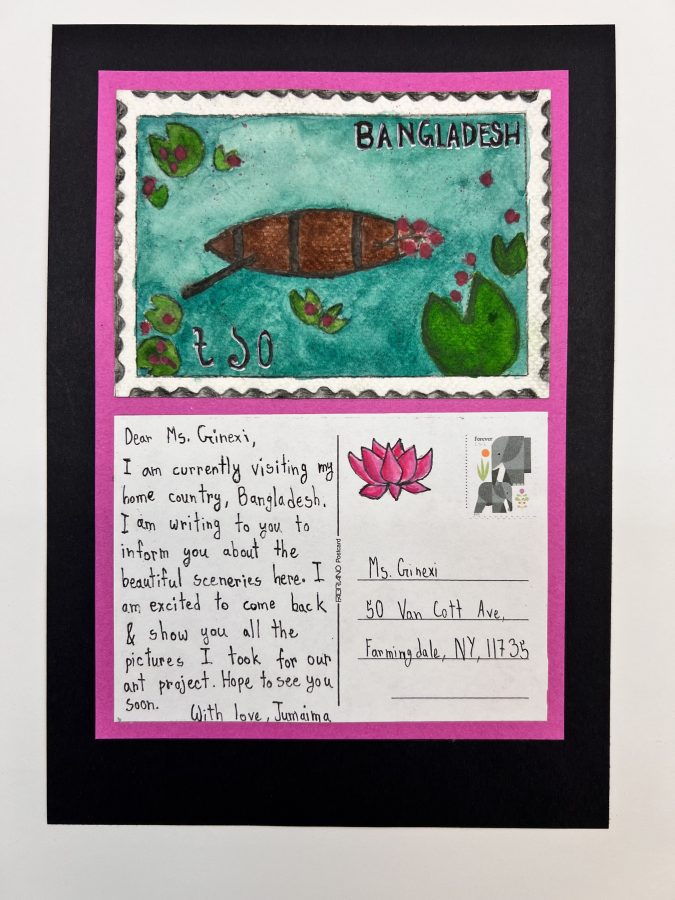 BANGLADESH
৳ ১০
Dear Ms. Ginexi,
I am currently visiting my
home country, Bangladesh.
I am writing to you to
inform you about the
beautiful sceneries here. I
am excited to come back
& show you all the
pictures I took for our
art project. Hope to see you
soon.
With love, Jumaima
FABRIANO Postcard
Forever
Ms. Ginexi
50 Van Cott Ave,
Farmingdale, NY, 11735